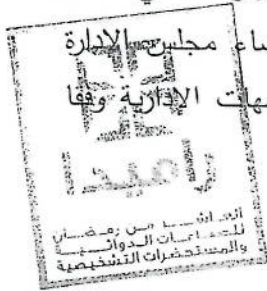 مجلس الإدارة
الإدارية وفقا
راميدا
العاشر من رمضان
للصناعات الدوائية
والمستحضرات التشخيصية